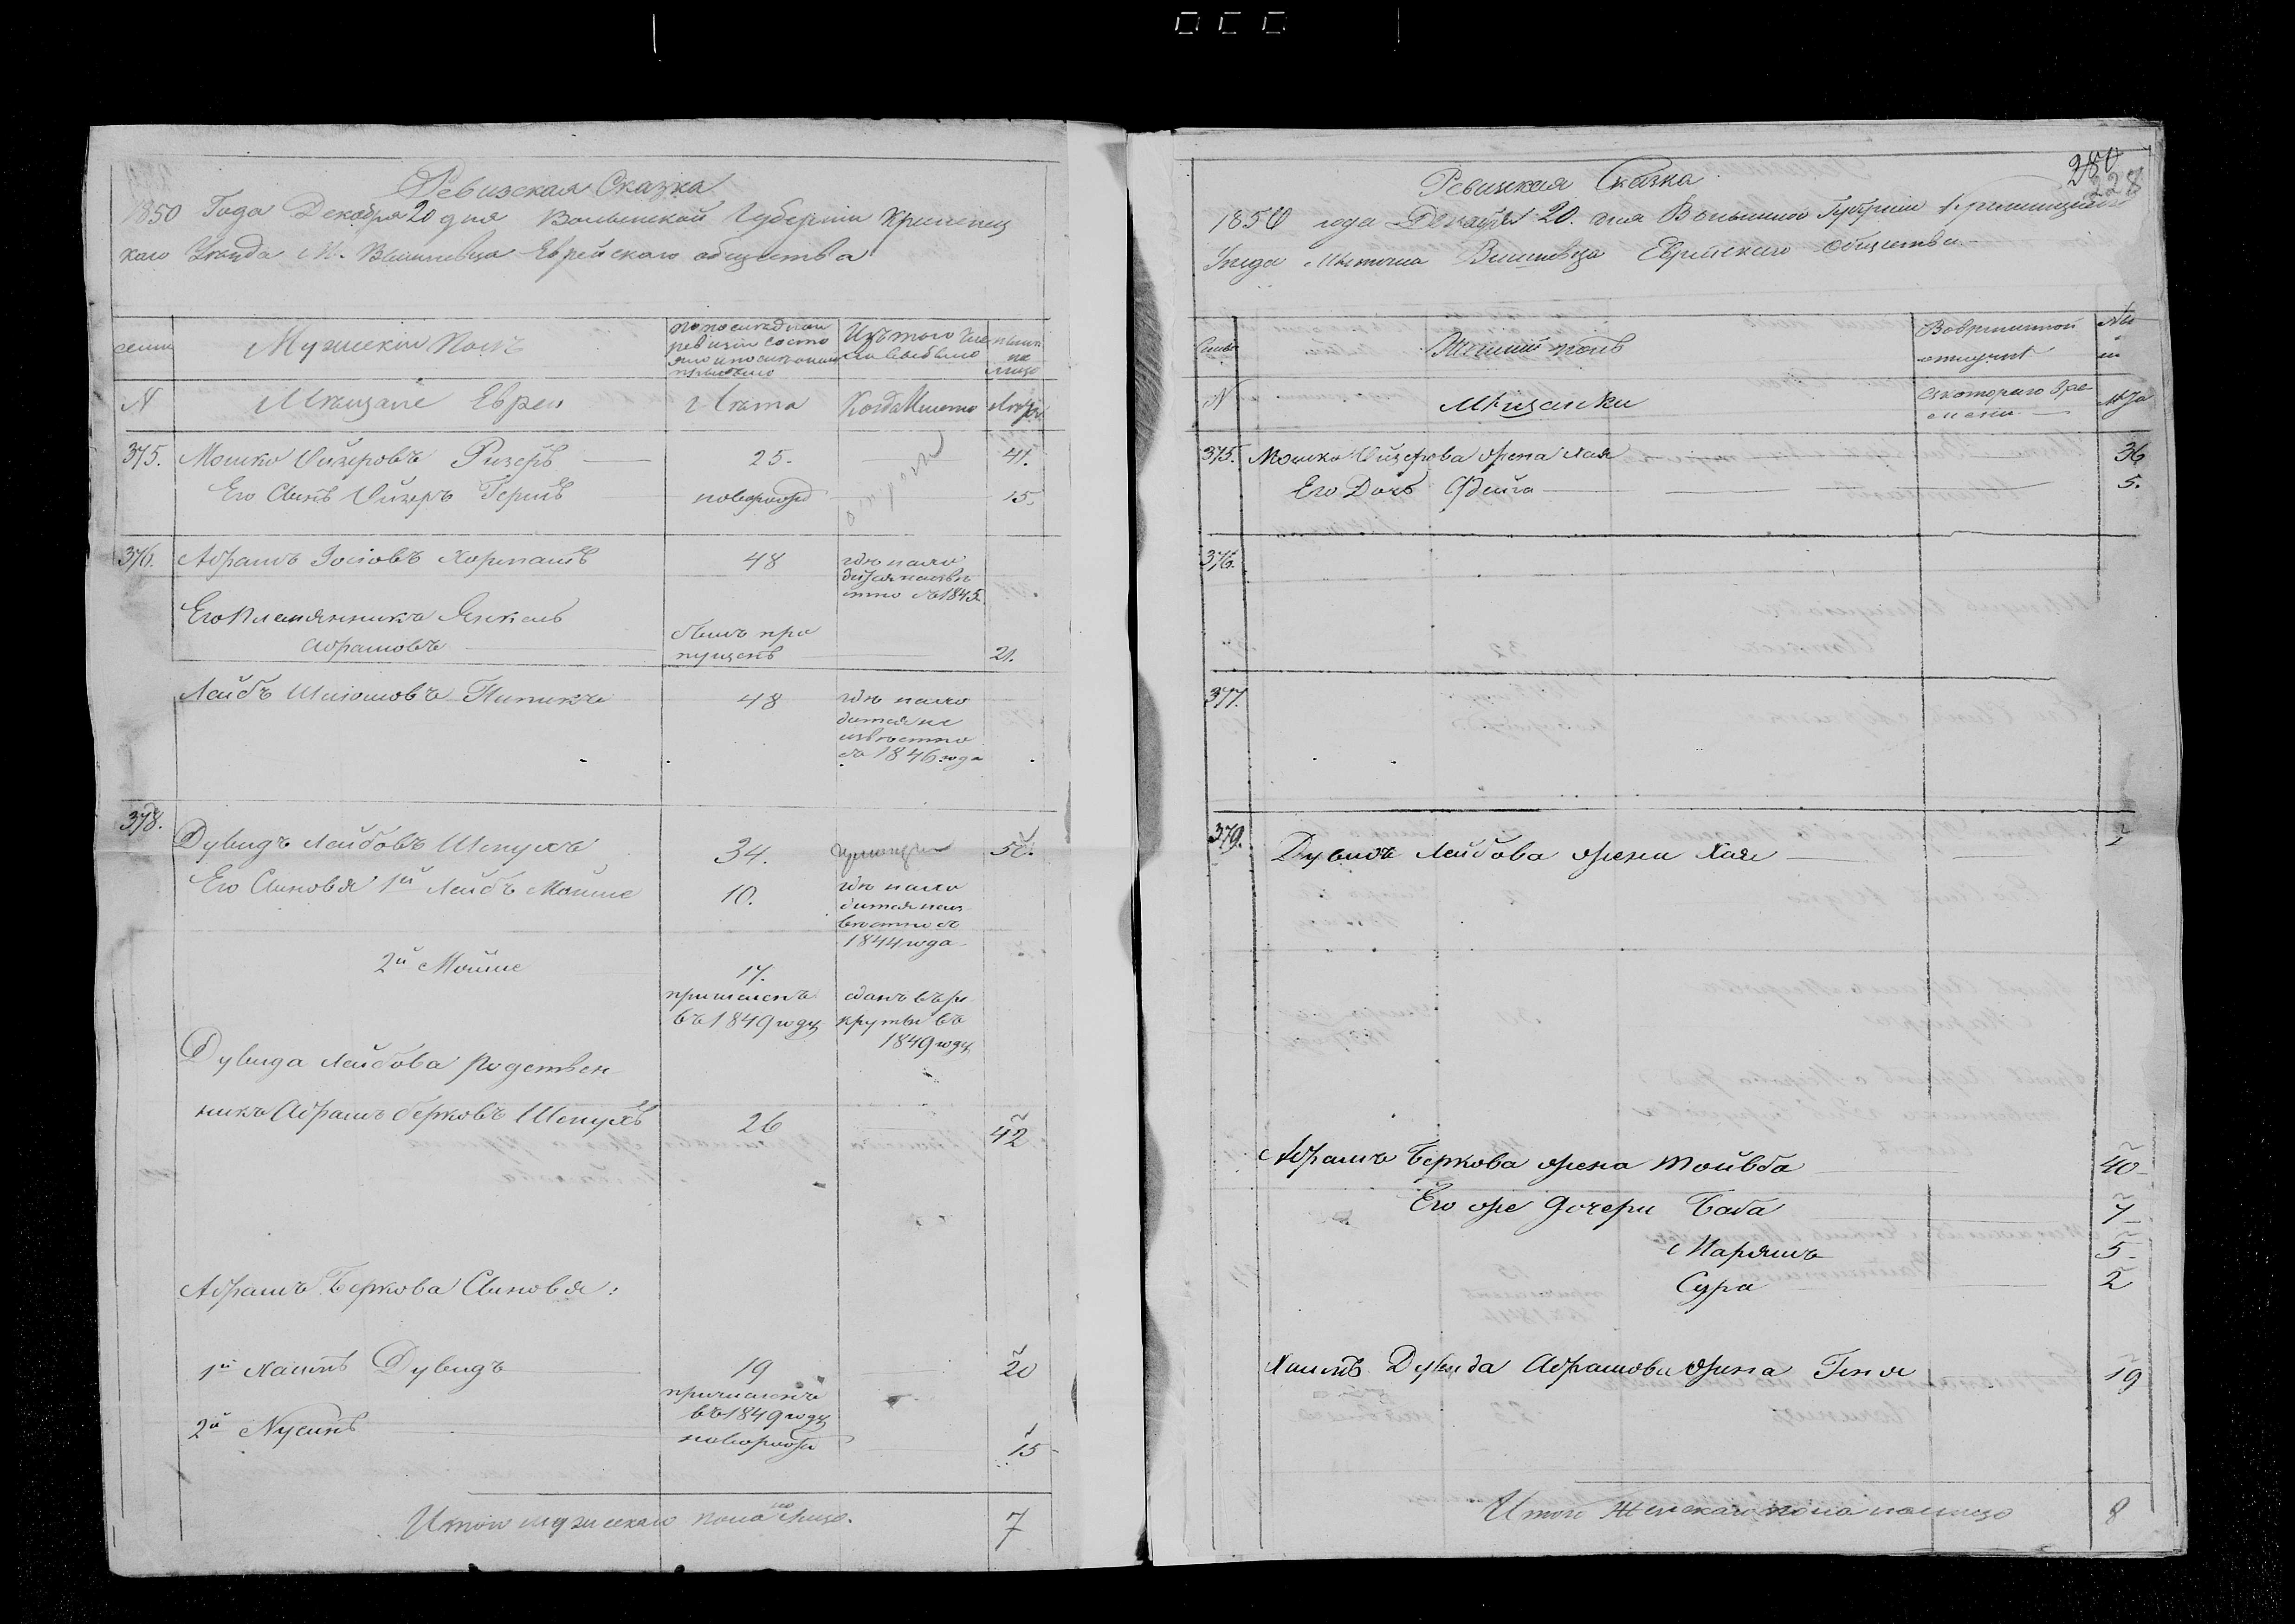 Ревизская Сказка
1850 Года Декабря 20 дня Волынской Губернiи Кременец
каго Уезда М. Вышневца Еврейскаго общества
семьи
Мужескiй Полъ
по последней
ревизiи состо
яло и после оной
прибыло
Изъ того чис
ла выбыло
ныне
на
лицо
N
Мещане Евреи
Лета
Когда Именно
Лета
375. Мошко Ойзеровъ Ризеръ 25. 41.
Его Сынъ Ойзеръ Гершъ новорожд 15.
376. Абрамъ Іосiовъ 48 где нахо
дится неизве
стно съ 1845
Его племянникъ Янкель
Абрамовъ
былъ про
пущенъ 21.
Лейбъ Шлiомовъ Пипикъ 48 где нахо
дится не
известно
съ 1846 года
378.
Дувидъ Лейбовъ Шепухъ 34. 50.
Его Сыновья 1й Лейбъ Мойше 10. где нахо
дится неиз
вестно съ
1844 года
2й Мойше 17.
причисленъ
въ 1849 году
сданъ въ ре
круты въ
1849 году
Дувида Лейбова родствен
никъ Абрамъ Берковъ Шепухъ 26 42
Абрамъ Беркова Сыновья:
1й Хаимъ Дувидъ 19 20
причисленъ
въ 1849 году
2й Нусинъ новорожд 15
Итого мужескаго пола на лицо. 7
280
228
Ревизская Сказка
1850 года Декабря 20. дня Волынской Губернiи Кременецкаго
Уезда Местечка Вишневца Еврейскаго Общества
Семьи
Женскiй полъ
Во временной
отлучке
N
Мещанки
Съ котораго вре
мени
Лета
375. Мошка Ойзерова жена Хая 36
Его Дочь Фейга 5.
376.
377.
379.
Дувидъ Лейбова жена Хая
Абрамъ Беркова жена Тойвба 40
Его же Дочери Баба 7
Марямъ 5
Сура 2
Хаимъ Дувида Абрамова жена Геня 19
Итого Женскаго пола налицо 8